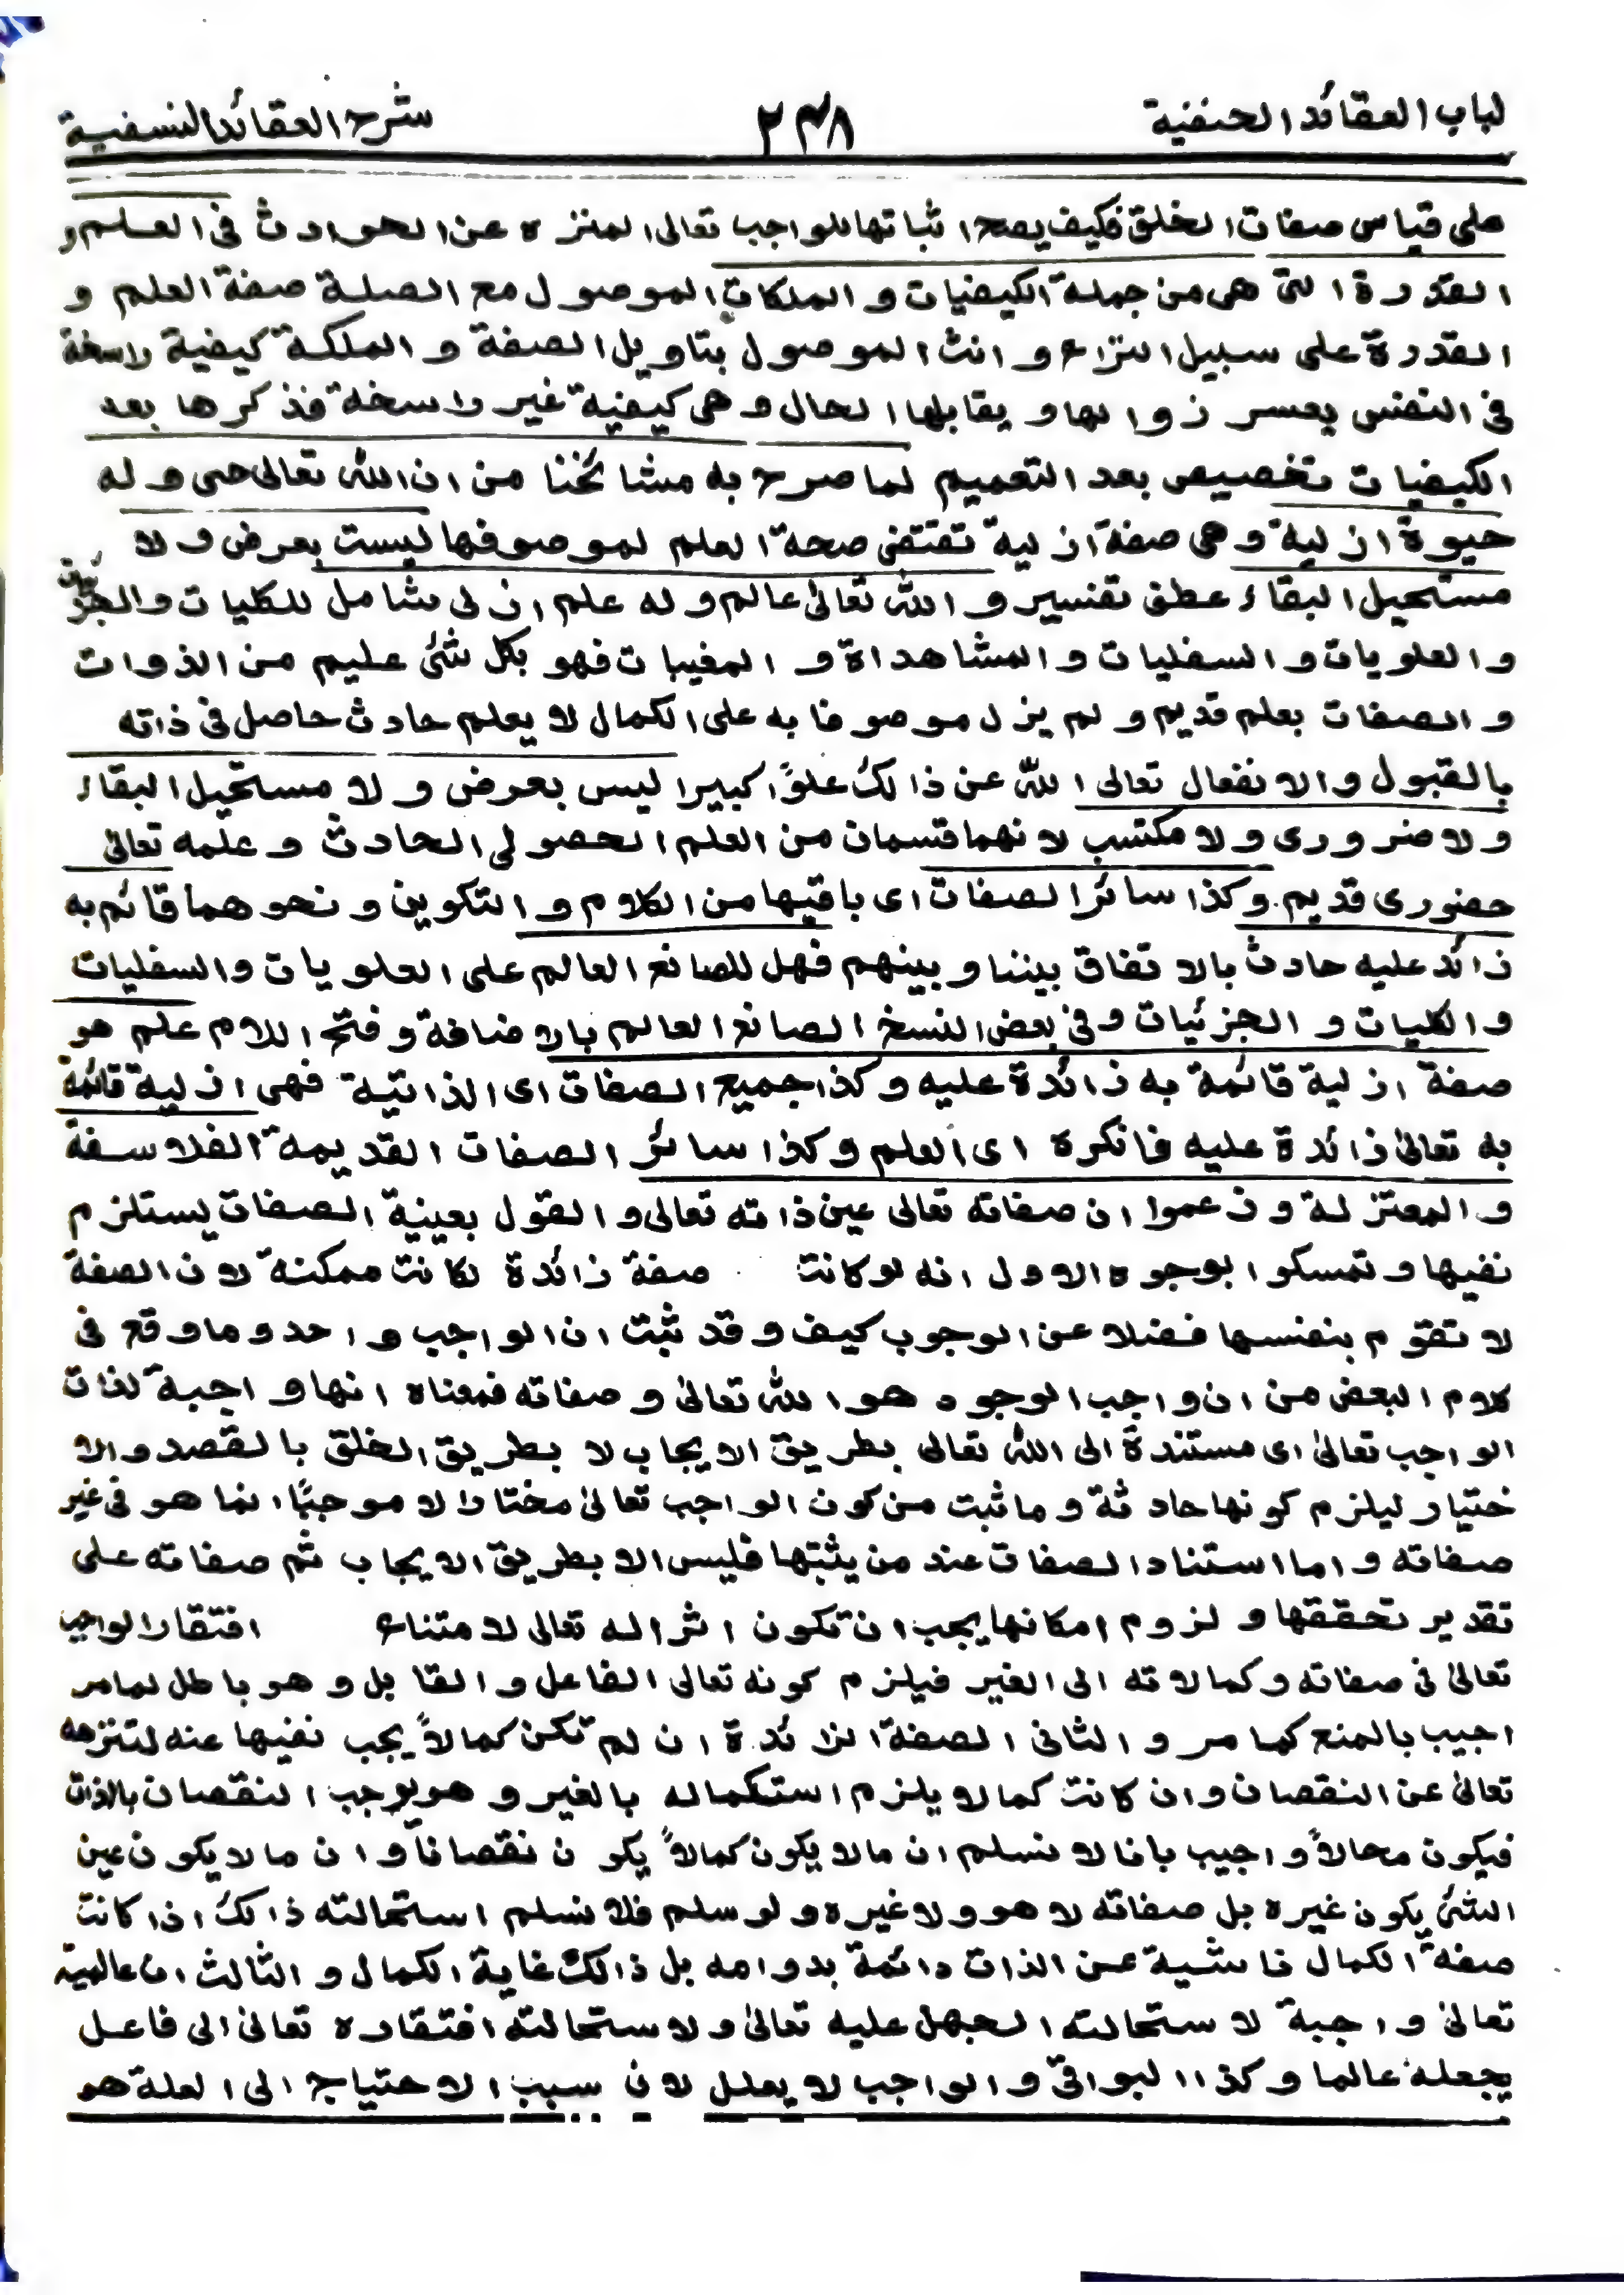 لباب العقائد الحنفية ٢٣٨ شرح العقائد النسفية
على قياس صفات الخلق فكيف يصح اثباتها للواجب تعالى المنزه عن الحوادث فى العلم و
القدرة التى هى من جملة الكيفيات و الملكات الموصول مع الصلة صفة العلم و
القدرة على سبيل النزاع و انث الموصول بتاويل الصفة و الملكة كيفية راسخة
فى النفس يعسر زوالها و يقابلها الحال و هى كيفية غير راسخة فذكرها بعد
الكيفيات تخصيص بعد التعميم لما صرح به مشائخنا من ان الله تعالى حى و له
حيوة ازلية و هى صفة ازلية تقتضى صحة العلم لموصوفها ليست بعرض و لا
مستحيل البقاء عطف تفسير و الله تعالىٰ عالم و له علم ازلى شامل للكليات والجزئيات
و العلويات و السفليات و المشاهداة و المغيبات فهو بكل شئ عليم من الذوات
و الصفات بعلم قديم و لم يزل موصوفا به على الكمال لا يعلم حادث حاصل فى ذاته
بالقبول و الانفعال تعالى الله عن ذالك علوًا كبيرا ليس بعرض و لا مستحيل البقاء
و لا ضرورى و لا مكتسب لانهما قسمان من العلم الحصولى الحادث و علمه تعالىٰ
حضورى قديم. و كذا سائر الصفات اى باقيها من الكلام و التكوين و نحوهما قائم به
زائد عليه حادث بالاتفاق بيننا و بينهم فهل للصانع العالم على العلويات والسفليات
و الكليات و الجزئيات و فى بعض النسخ الصانع العالم بالاضافة و فتح اللام علم هو
صفة ازلية قائمة به زائدة عليه و كذا جميع الصفات اى الذاتية فهى ازلية قائمة
به تعالىٰ زائدة عليه فانكره اى العلم و كذا سائر الصفات القديمة الفلاسفة
و المعتزلة و زعموا ان صفاته تعالى عين ذاته تعالى و القول بعينية الصفات يستلزم
نفيها و تمسكوا بوجوه الاول انه لو كانت صفة زائدة لكانت ممكنة لان الصفة
لا تقوم بنفسها فضلا عن الوجوب كيف و قد ثبت ان الواجب واحد و ما وقع فى
كلام البعض من ان واجب الوجود هو الله تعالىٰ و صفاته فمعناه انها واجبة لذات
الواجب تعالىٰ اى مستندة الى الله تعالى بطريق الايجاب لا بطريق الخلق بالقصد والا
ختيار ليلزم كونها حادثة و ما ثبت من كون الواجب تعالىٰ مختارا لا موجبًا انما هو فى غير
صفاته و اما استناد الصفات عند من يثبتها فليس الا بطريق الايجاب ثم صفاته على
تقدير تحققها و لزوم امكانها يجب ان تكون اثرا له تعالى لامتناع افتقار الواجب
تعالىٰ فى صفاته و كمالاته الى الغير فيلزم كونه تعالى الفاعل و القابل و هو باطل لما مر
اجيب بالمنع كما مر و الثانى الصفة الزائدة ان لم تكن كمالاً يجب نفيها عنه لتنزهه
تعالىٰ عن النقصان و ان كانت كمالا يلزم استكماله بالغير و هو يوجب النقصان بالذات
فيكون محالاً و اجيب بانا لا نسلم ان ما لا يكون كمالاً يكون نقصاناً و ان ما لا يكون عين
الشئ يكون غيره بل صفاته لا هو و لا غيره و لو سلم فلا نسلم استحالته ذالك اذا كانت
صفة الكمال ناشية عن الذات دائمة بدوامه بل ذالك غاية الكمال و الثالث ان عالمية
تعالىٰ واجبة لاستحالته الجهل عليه تعالىٰ و لاستحالته افتقاره تعالىٰ الى فاعل
يجعله عالما و كذا البواقى و الواجب لا يعلل لان سبب الاحتياج الى العلة هو